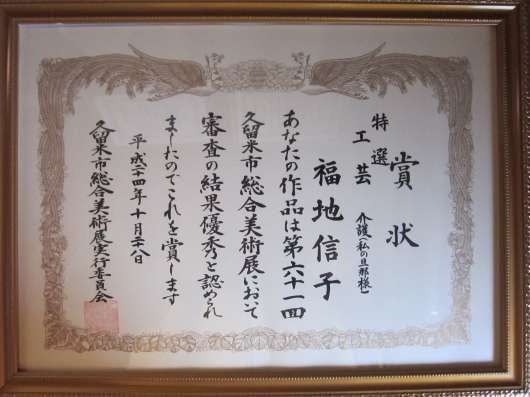 賞状
特選
工芸 介護(私の旦那様)
福地信子
あなたの作品は第六十一回
久留米市総合美術展において
審査の結果優秀と認められ
ましたのでこれを賞します
平成二十四年十月二八日
久留米市総合美術展実行委員会